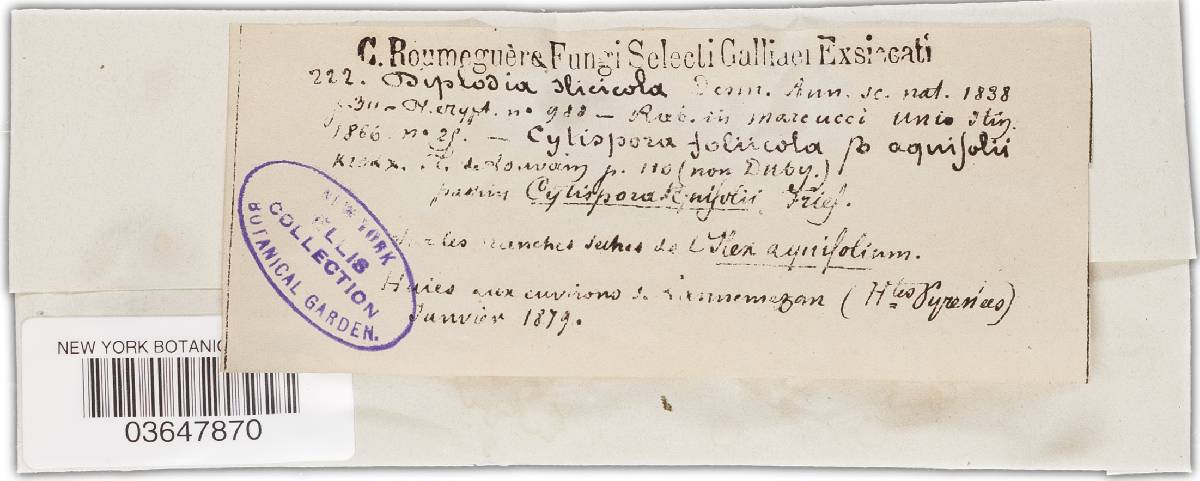 C. Roumeguère Fungi Selecti Galliaei Exsiccati
222. Diplodia ilicicola Desm. Ann. sc. nat. 1838
p. 311 - Pl. crypt. n° 988 - Rab. in Marcucci Unio Itin.
1866. n° 28. - Cytispora foliicola β aquifolii
Kickx. Fl. de Louvain p. 110 (non Duby.)
Cytispora aquifolii Fries.
Sur les branches sèches de l'Ilex aquifolium.
Haies aux environs de Lannemezan (Htes Pyrénées)
Janvier 1879.
NEW YORK
ELLIS
COLLECTION
BOTANICAL GARDEN.
NEW YORK BOTANIC
03647870